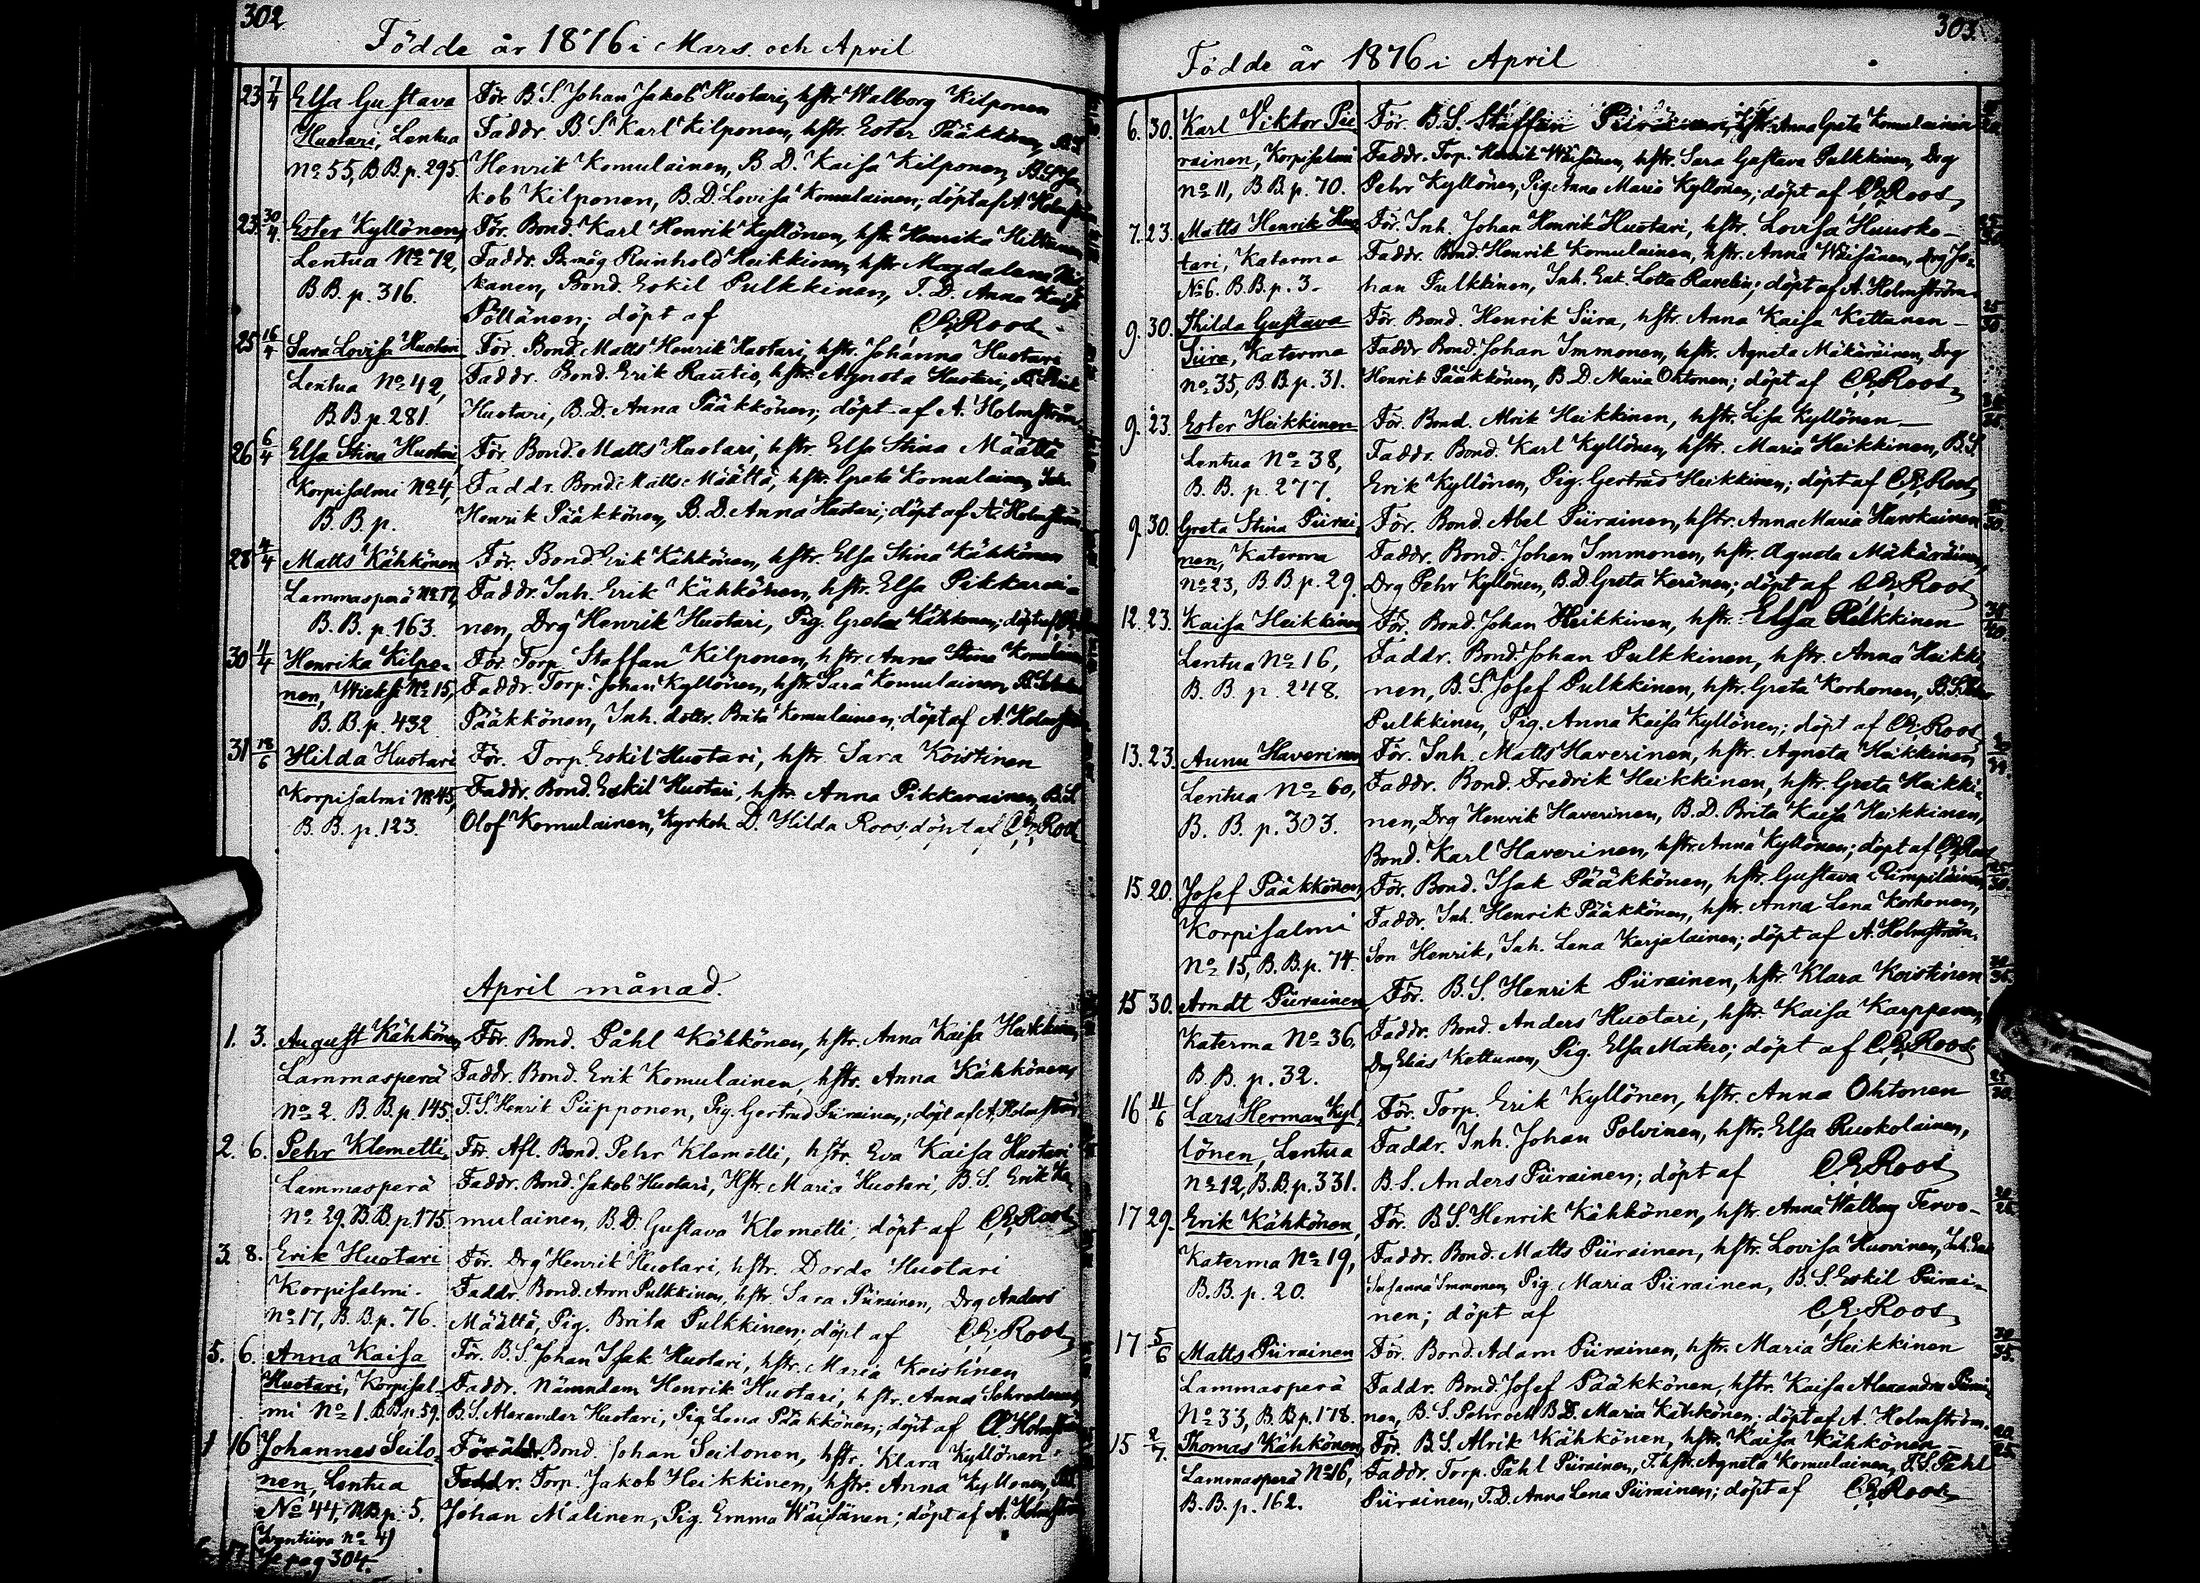 302
Födde år 1876 i Mars och April
23 7/4 Elsa Gustava För. B.S. Johan Jakob Huotari, hstr. Walborg Kilponen
Huotari, Lentua Faddr. B.S. Karl Kilponen, hstr. Ester Pääkkönen,
No 55, B.B.p. 295. Henrik Komulainen, B.D. Kaisa Kilponen,
kob Kilponen, B.D. Lovisa Komulainen; döpt af A. Holmström
23. 30/4. Ester Kyllönen, För. Bond. Karl Henrik Kyllönen, hstr. Henrika
Lentua No 72, Faddr. Reinhold Heikkinen, hstr. Magdalena
B.B. p. 316. kanen, Bond. Eskil Pulkkinen, T.D. Anna Kaisa
Pöllänen; döpt af C.E. Roos
25 16/4 Sara Lovisa Huotari För. Bond. Matts Henrik Huotari, hstr. Johanna Huotari
Lentua No 42, Faddr. Bond. Erik Rautio, hstr. Agneta Huotari,
B.B.p. 281. Huotari, B.D. Anna Pääkkönen; döpt af A. Holmström
26 6/4 Elsa Stina Huotari För. Bond. Matts Huotari, hstr. Elsa Stina Määttä
Korpisalmi No 4, Faddr. Bond. Matts Määttä, hstr. Greta Komulainen,
B.B.p. Henrik Pääkkönen, B.D. Anna Huotari; döpt af A. Holmström
28 4/4 Matts Kähkönen För. Bond. Erik Kähkönen, hstr. Elsa Stina Kähkönen
Lammasperä No 17, Faddr. Inh. Erik Kähkönen, hstr. Elsa Pikkarai-
B.B. p. 163. nen, Drg Henrik Huotari, Pig. Greta Kähkönen; döpt af
30 4/4 Henrika Kilpo- För. Torp. Staffan Kilponen, hstr. Anna Stina Komulainen
nen, Wieksi No 15, Faddr. Torp. Johan Kyllönen, hstr. Sara Komulainen,
B.B.p. 432 Pääkkönen, Inh. dottr. Brita Komulainen; döpt af A. Holmström
31 18/6 Hilda Huotari För. Torp. Eskil Huotari, hstr. Sara Koistinen
Korpisalmi No 45, Faddr. Bond. Eskil Huotari, hstr. Anna Pikkarainen, B.S.
B.B. p. 123. Olof Komulainen, Kyrkoh. D. Hilda Roos; döpt af C.E. Roos
April månad.
1. 3. August Kähkönen, För. Bond. Påhl Kähkönen, hstr. Anna Kaisa Heikkinen,
Lammasperä Faddr. Bond. Erik Komulainen, hstr. Anna Kähkönen,
No 2. B.B.p. 145. T.S. Henrik Piipponen, Pig. Gertrud Piirainen; döpt af A. Holmström
2. 6. Pehr Klemetti, För. Afl. Bond. Pehr Klemetti, hstr. Eva Kaisa Huotari
Lammasperä Faddr. Bond. Jakob Huotari, Hstr. Maria Huotari, B.S. Erik Ko-
No 29. B.B.p. 175. mulainen, B.D. Gustava Klemetti; döpt af C.E. Roos
3. 8. Erik Huotari För. Drg Henrik Huotari, hstr. Dordo Huotari
Korpisalmi. Faddr. Bond. Aron Pulkkinen, hstr. Sara Piirainen, Drg Anders
No 17, B.B.p. 76. Määttä, Pig. Brita Pulkkinen; döpt af C.E. Roos
5. 6. Anna Kaisa För. B.S. Johan Isak Huotari, hstr. Maria Koistinen
Huotari, Korpisal- Faddr. Nämndem. Henrik Huotari, hstr. Anna Schroderus,
mi No 1. B.B.p. 59. B.S. Alexander Huotari, Pig. Lena Pääkkönen; döpt af A. Holmström
1 16 Johannes Seilo- Föräldr. Bond. Johan Seilonen, hstr. Klara Kyllönen
nen, Lentua Faddr. Torp. Jakob Heikkinen, hstr. Anna Kyllönen,
No 44, p. 5. Johan Malinen, Pig. Emma Wäisänen; döpt af A. Holmström
No 4)
Se pag 304.
303.
Födde år 1876 i April
6. 30. Karl Viktor Pii- För. B.S. Staffan Piirainen, hstr. Anna Greta Komulainen
rainen, Korpisalmi Faddr. Torp. Henrik Wäisänen, hstr. Sara Gustava Pulkkinen, Drg
No 11, B.B.p. 70. Pehr Kyllönen, Pig. Anna Maria Kyllönen; döpt af C.E. Roos
7. 23. Matts Henrik Huo- För. Inh. Johan Henrik Huotari, hstr. Lovisa Huusko- 25/30
tari, Katerma Faddr. Bond. Henrik Komulainen, hstr. Anna Wäisänen, Drg Jo-
No 6. B.B.p. 3. han Pulkkinen, Inh. Enk. Lotta Ravelin; döpt af A. Holmström.
9. 30. Thilda Gustava För. Bond. Henrik Siira, hstr. Anna Kaisa Kettunen 25/30
Siira, Katerma Faddr Bond. Johan Immonen, hstr. Agneta Mäkäräinen, Drg
No 35, B.B.p. 31. Henrik Pääkkönen, B.D. Maria Ohtonen; döpt af C.E. Roos
9. 23. Ester Heikkinen För. Bond. Alrik Heikkinen, hstr. Lisa Kyllönen
Lentua No 38, Faddr. Bond. Karl Kyllönen, hstr. Maria Heikkinen, B.S.
B.B. p. 277. Erik Kyllönen, Pig. Gertrud Heikkinen; döpt af C.E. Roos
9. 30. Greta Stina Piirai- För. Bond. Abel Piirainen, hstr. Anna Maria Hurskainen
nen, Katerma Faddr. Bond. Johan Immonen, hstr. Agneta Mäkäräinen,
No 23, B.B.p. 29. Drg Pehr Kyllönen, B.D. Greta Keränen; döpt af C.E. Roos
12. 23. Kaisa Heikkinen För. Bond. Johan Heikkinen, hstr. Elsa Pulkkinen
Lentua No 16, Faddr. Bond. Johan Pulkkinen, hstr. Anna Heikki-
B.B. p. 248. nen, B.S. Josef Pulkkinen, hstr. Greta Korhonen, B.S.
Pulkkinen, Pig. Anna Kaisa Kyllönen; döpt af C.E. Roos
13. 23. Aunu Haverinen För. Inh. Matts Haverinen, hstr. Agneta Heikkinen
Lentua No 60, Faddr. Bond. Fredrik Heikkinen, hstr. Greta Heikki-
B.B. p. 303. nen, Drg Henrik Haverinen, B.D. Brita Kaisa Heikkinen,
Bond. Karl Haverinen, hstr. Anna Kyllönen; döpt af C.E. Roos
15 20. Josef Pääkkönen, För. Bond. Isak Pääkkönen, hstr. Gustava Pimpiläinen
Korpisalmi Faddr. Inh. Henrik Pääkkönen, hstr. Anna Lena Korhonen,
No 15, B.B.p. 74. Son Henrik, Inh. Lena Karjalainen; döpt af A. Holmström.
15 30. Arndt Piirainen För. B.S. Henrik Piirainen, hstr. Klara Koistinen
Katerma No 36, Faddr. Bond. Anders Huotari, hstr. Kaisa Karppanen,
B.B. p. 32. Drg Elias Kettunen, Pig. Elsa Matero; döpt af C.E. Roos
16 4/6 Lars Herman Kyl- För. Torp. Erik Kyllönen, hstr. Anna Ohtonen 25/30
lönen, Lentua Faddr. Inh. Johan Polvinen, hstr. Elsa Ruokolainen,
No 12, B.B.p. 331. B.S. Anders Piirainen; döpt af C.E. Roos
17 29. Erik Kähkönen, För. B.S. Henrik Kähkönen, hstr. Anna Walborg Tervo-
Katerma No 19, Faddr. Bond. Matts Piirainen, hstr. Lovisa Huovinen, Inh. Enk
B.B. p. 20. Susanna Immonen, Pig. Maria Piirainen, B.S. Eskil Piirai-
nen; döpt af C.E. Roos
17 5/6 Matts Piirainen För. Bond. Adam Piirainen, hstr. Maria Heikkinen
Lammasperä Faddr. Bond. Josef Pääkkönen, hstr. Kaisa Alexandra Piirai-
No 33, B.B.p. 178. nen, B.S. Pehr och B.D. Maria Kähkönen; döpt af A. Holmström.
15 2/7. Thomas Kähkönen, För. B.S. Alrik Kähkönen, hstr. Kaisa Kähkönen
Lammasperä No 16, Faddr. Torp. Påhl Piirainen, T.hstr. Agneta Komulainen, T.S. Påhl
B.B. p. 162. Piirainen, T.D. Anna Lena Piirainen; döpt af C.E. Roos